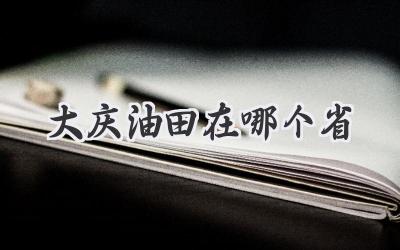 大庆油田在哪个省